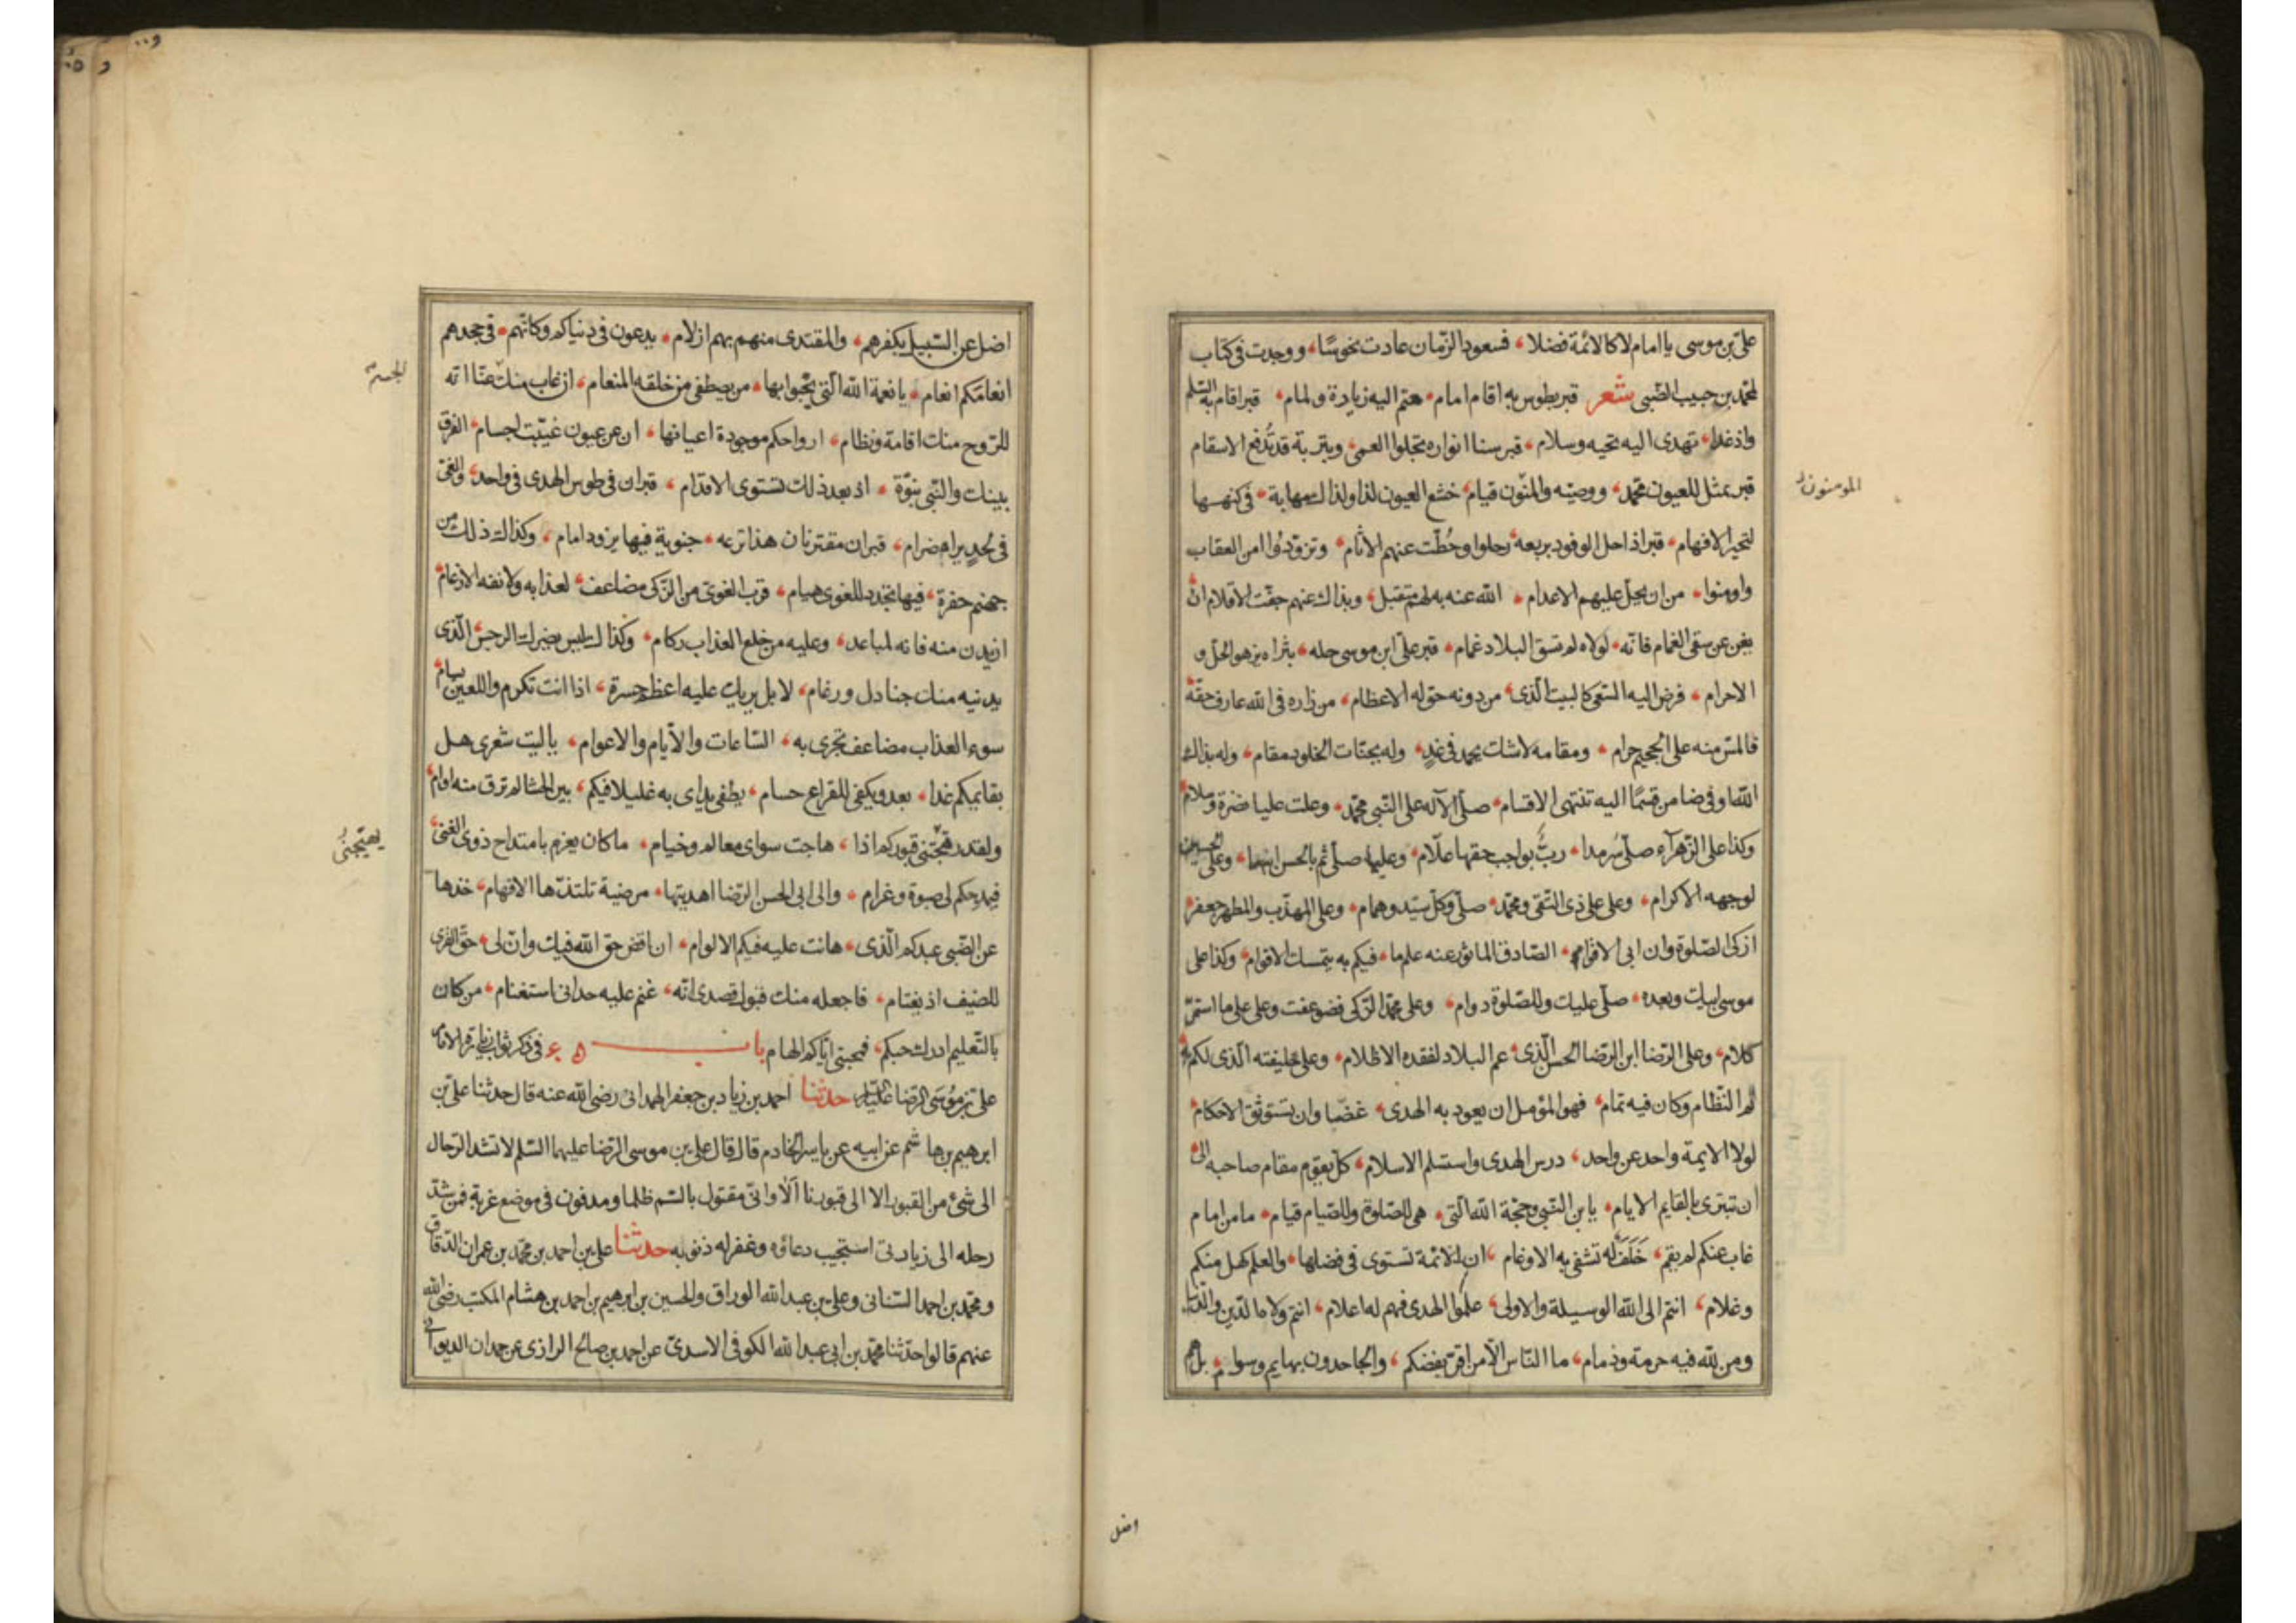 علي بن موسى يا امام لا كالائمة فضلا، فسعود الزمان عادت نحوسًا، ووجدت في كتاب
لمحمد بن حبيب الضبي شعر قبر بطوس به اقام امام، حتم اليه زيارة ولمام، قبر اقام به السلم
واذ غدا، تهدى اليه تحيه وسلام، قبر سنا انواره تجلوا العمى، وبتربة قد تُدفع الاسقام
قبر يمثل للعيون محمد، ووصيّه والمنون قيام، خشع العيون لذا ولذاك مهابة، في كنهها
المومنون
لتحير الافهام، قبر اذا حل الوفود بربعه، رحلوا وحُطّت عنهم الاثام، وتزودوا امن العقاب
واومنوا، من ان يحل عليهم الاعدام، الله عنه به لهم متقبل، وبذاك عنهم جفت الاقلام ان
يغن عن سقى الغمام فانه، لولاه لم تسق البلاد غمام، قبر علي ابن موسى حله، بثراه يزهو الحل و
الاحرام، فرض اليه السعى كالبيت الذى، من دونه حق له الاعظام، من زاره في الله عارف حقه
فالمس منه على الجحيم حرام، ومقامه لا شك يحمد في غدٍ، وله بجنات الخلود مقام، وله بذاك
الله اوفى ضامن قسمًا اليه تنتهى الاقسام، صلى الآله على النبي محمد، وعلت عليا نضرة وسلام
وكذا على الزهرآء صلى سرمدا، ربّ بواجب حقها علّام، وعليها صلى ثم بالحسن ابنها، وعلى الحسين
لوجهه الاكرام، وعلى علي ذى التقى ومحمد، صلى وكل سيد وهمام، وعلى المهذّب والمطهر جعفر
ازكى الصلوة وان ابى الاقوام، الصادق الماثور عنه علم ما، فيكم به يتمسك الاقوام، وكذا على
موسى ابيك وبعده، صلى عليك وللصلوة دوام، وعلى محمد الزكى فضوعفت وعلى علي ما استمر
كلام، وعلى الرضا ابن الرضا الحسن الذى، عم البلاد لفقده الاظلام، وعلى خليفته الذى لكم به
تم النظام وكان فيه تمام، فهو المؤمل ان يعود به الهدى، غضّا وان تستوثق الاحكام
لولا الايمة واحد عن واحد، درس الهدى واستسلم الاسلام، كل يقوم مقام صاحبه الى
ان تنبرى بالقايم الايام، يا بن النبي وحجّة الله التى، هى للصلوة وللصيام قيام، ما من امام
غاب عنكم لم يقم، خَلَف له تشفى به الاوغام، ان الائمة تستوى في فضلها، والعلم كهل منكم
وغلام، انتم الى الله الوسيلة والاولى، علموا الهدى فهم له اعلام، انتم ولاه الدين والدنيا
ومن لله فيه حرمة وذمام، ما الناس الا من اقر بفضلكم، والجاحدون بهايم وسوام، بل هم
اضل
اضل عن السبيل بكفرهم، والمقتدى منهم بهم ازلام، يدعون في دنياكم وكانهم، في جحدهم
انعامكم انعام، يا نعمة الله التى يحبوا بها، من يصطفى من خلقه المنعام، ان غاب منك عنا انه
للروح منك اقامة ونظام، ارواحكم موجودة اعيانها، ان عن عيون غيبت اجسام، الفرق
بينك والنبي نبوّة، اذ بعد ذلك تستوى الاقدام، قبران في طوس الهدى في واحد، والغى
في لحدٍ يراه ضرام، قبران مقترنان هذا ترعه، جنوية فيها يزود امام، وكذاك ذلك من
جهنم حفرة، فيها تجدد للغوى هيام، قرب الغوى من الزكى مضاعف، لعذابه ولانفه الارغام
ان يدن منه فانه لمباعد، وعليه من خلع العذاب ركام، وكذاك ليس يضرك الرجس الذى
يدنيه منك جنادل ورغام، لا بل يريك عليه اعظم حسرة، اذ انت تكرم واللعين يسام
سوء العذاب مضاعف تجرى به، الساعات والايام والاعوام، يا ليت شعرى هل
بقايمكم غدا، يعدو بكفى للقراع حسام، يطفى يداى به غليلا فيكم، بين الحشا لم ترق منه اوام
ولقد تهيّجنى قبوركم اذا، هاجت سواى معالم وخيام، ما كان يغرم بامتداح ذوى الغنى
يهيّجنى
فبمدحكم لى صبوة وغرام، والى ابى الحسن الرضا اهديتها، مرضية تلتذها الافهام، خذها
عن الضبى عبدكم الذى، هانت عليه فيكم الالوام، ان اقض حق الله فيك وان لى، حق القرى
للضيف اذ يغتام، فاجعله منك قبول قصدى انه، غنم عليه حدانى استغنام، من كان
بالتعليم ادرك حبكم، فمحبتى اياكم الهام باب في ذكر ثواب زيارة الامام
علي بن موسى الرضا عليه السلم حدثنا احمد بن زياد بن جعفر الهمدانى رضي الله عنه قال حدثنا علي بن
ابرهيم بن هاشم عن ابيه عن ياسر الخادم قال قال علي بن موسى الرضا عليهما السلم لا تشد الرحال
الى شئ من القبور الا الى قبورنا الا وانى مقتول بالسم ظلما ومدفون في موضع غربة فمن شد
رحله الى زيارتى استجيب دعاؤه وغفر له ذنوبه حدثنا علي بن احمد بن محمد بن عمران الدقاق
ومحمد بن احمد السنانى وعلي بن عبد الله الوراق والحسين بن ابرهيم بن احمد بن هشام المكتب رضي الله
عنهم قالوا حدثنا محمد بن ابى عبد الله الكوفى الاسدى عن احمد بن صالح الرازى عن حمدان الديوانى